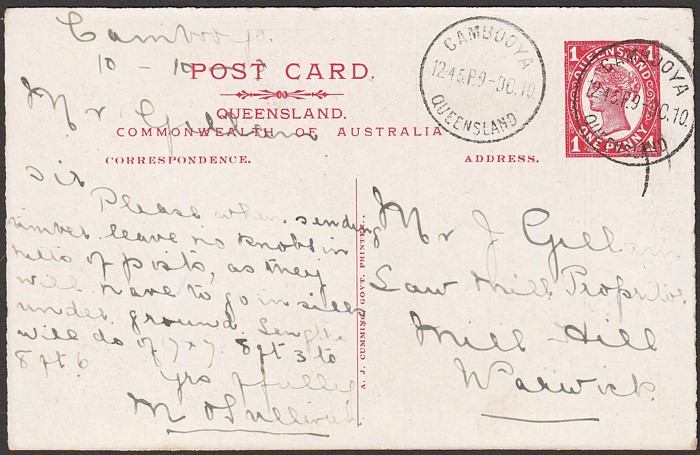 Cambooya
10 - 10 -
POST CARD.
Mr Gillam
QUEENSLAND.
COMMONWEALTH OF AUSTRALIA
CORRESPONDENCE.
ADDRESS.
CAMBOOYA
12.45.P.9-OC.10
QUEENSLAND
1 QUEENSLAND 1
1 ONE PENNY
CAMBOOYA
12.45.P.9-OC.10
QUEENSLAND
Sir
Please when sending
timber leave no knobs in
butts of posts, as they
will have to go in sills
under ground. Lengths
will do of 7x7 8ft 3 to
8ft 6
yrs ffully
M OSullivan
A. J. CUMMING, GOVT. PRINTER.
Mr J Gillam
Saw Mill Proprietor
Mill Hill
Warwick